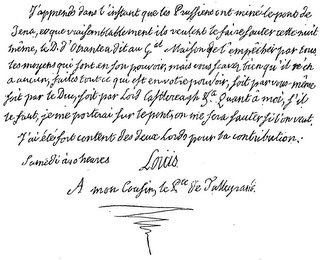 J'apprends dans l'instant que les Prussiens ont miné le pont de
Jena, et que vraisemblablement ils veulent le faire sauter cette nuit
même, le D. d'Otrante a dit au Gal Maison de l'empêcher par tous
les moyens qui sont en son pouvoir, mais vous savez bien qu'il n'en a
aucun, faites tout ce qui est en votre pouvoir, soit par vous-même
soit par le Duc, soit par Lord Castlereagh &ca Quant à moi, s'il
le faut, je me porterai sur le pont, on me fera sauter si l'on veut.
J'ai été fort content des deux Lords pour la contribution:
Samedi à 10 heures Louis
A mon Cousin, le Pce de Talleyrand.